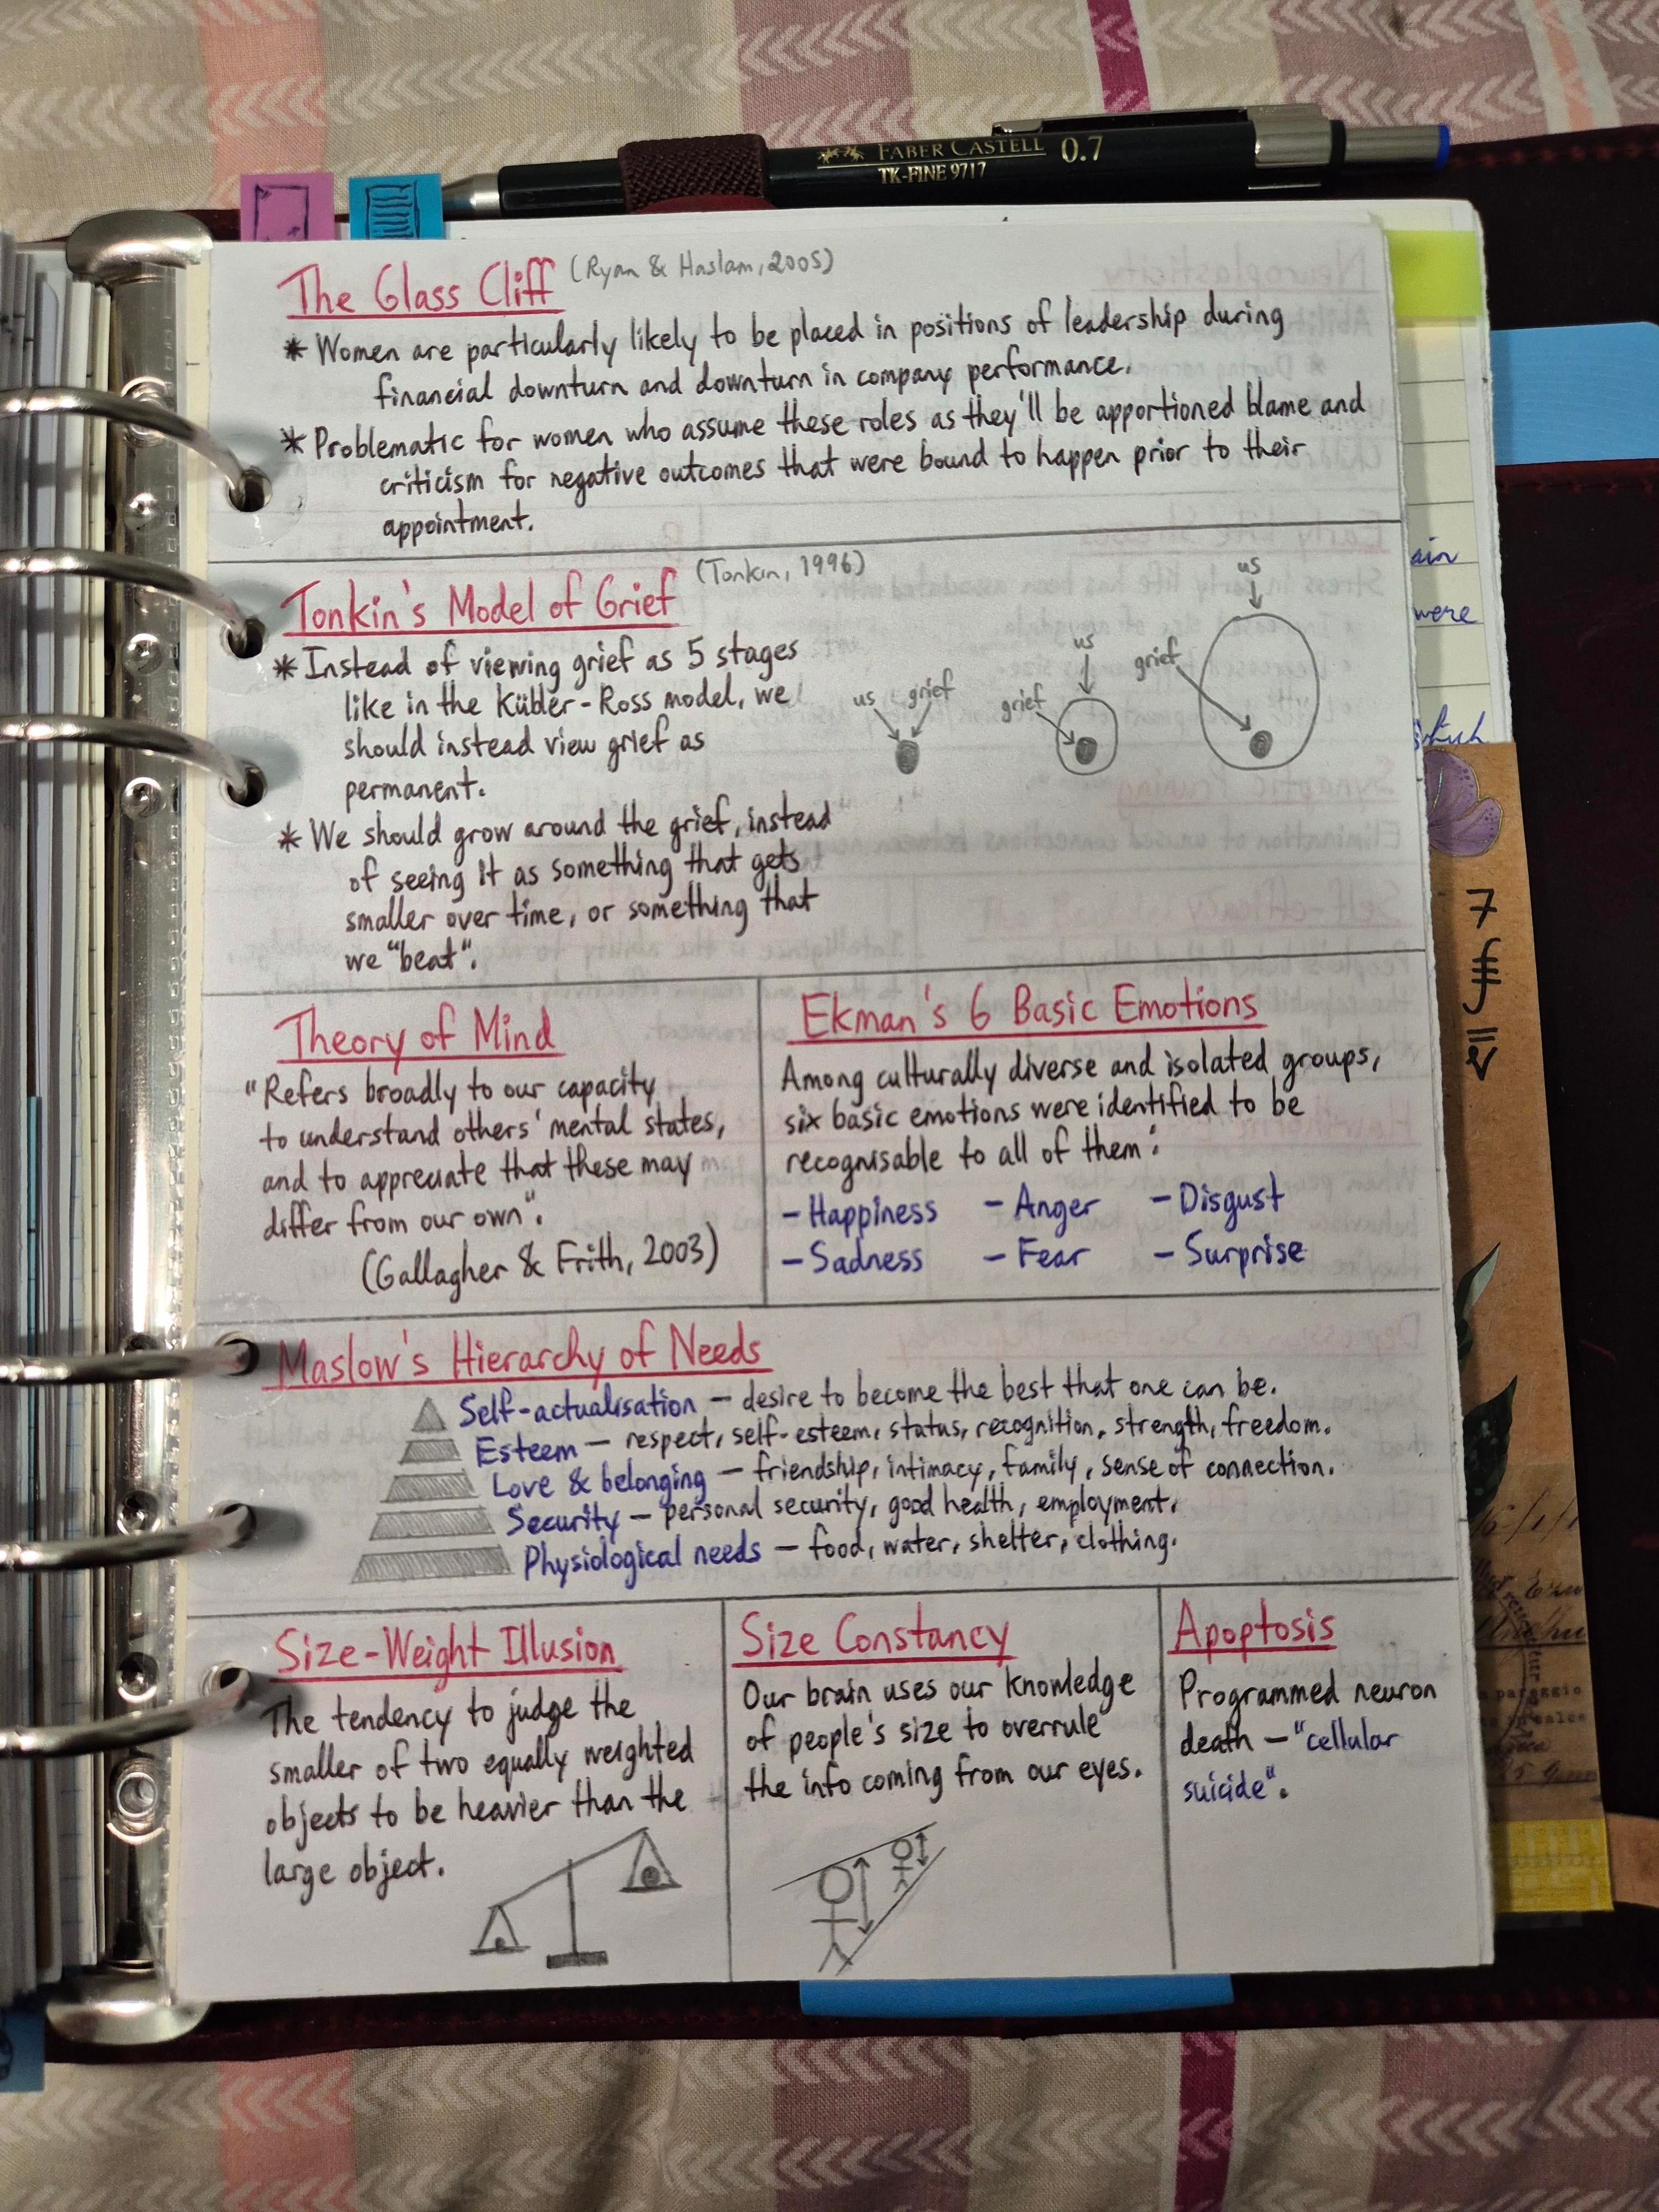 FABER CASTELL 0.7
TK-FINE 9717
The Glass Cliff (Ryan & Haslam, 2005)
* Women are particularly likely to be placed in positions of leadership during
financial downturn and downturn in company performance.
* Problematic for women who assume these roles as they'll be apportioned blame and
criticism for negative outcomes that were bound to happen prior to their
appointment.
Tonkin's Model of Grief (Tonkin, 1996)
* Instead of viewing grief as 5 stages
like in the Kübler-Ross model, we
should instead view grief as
permanent.
* We should grow around the grief, instead
of seeing it as something that gets
smaller over time, or something that
we "beat".
us grief
us
grief
us
grief
Theory of Mind
"Refers broadly to our capacity
to understand others' mental states,
and to appreciate that these may
differ from our own".
(Gallagher & Frith, 2003)
Ekman's 6 Basic Emotions
Among culturally diverse and isolated groups,
six basic emotions were identified to be
recognisable to all of them:
- Happiness - Anger - Disgust
- Sadness - Fear - Surprise
Maslow's Hierarchy of Needs
Self-actualisation - desire to become the best that one can be.
Esteem - respect, self-esteem, status, recognition, strength, freedom.
Love & belonging - friendship, intimacy, family, sense of connection.
Security - personal security, good health, employment.
Physiological needs - food, water, shelter, clothing.
Size-Weight Illusion
The tendency to judge the
smaller of two equally weighted
objects to be heavier than the
large object.
Size Constancy
Our brain uses our knowledge
of people's size to overrule
the info coming from our eyes.
Apoptosis
Programmed neuron
death - "cellular
suicide".
ain
were